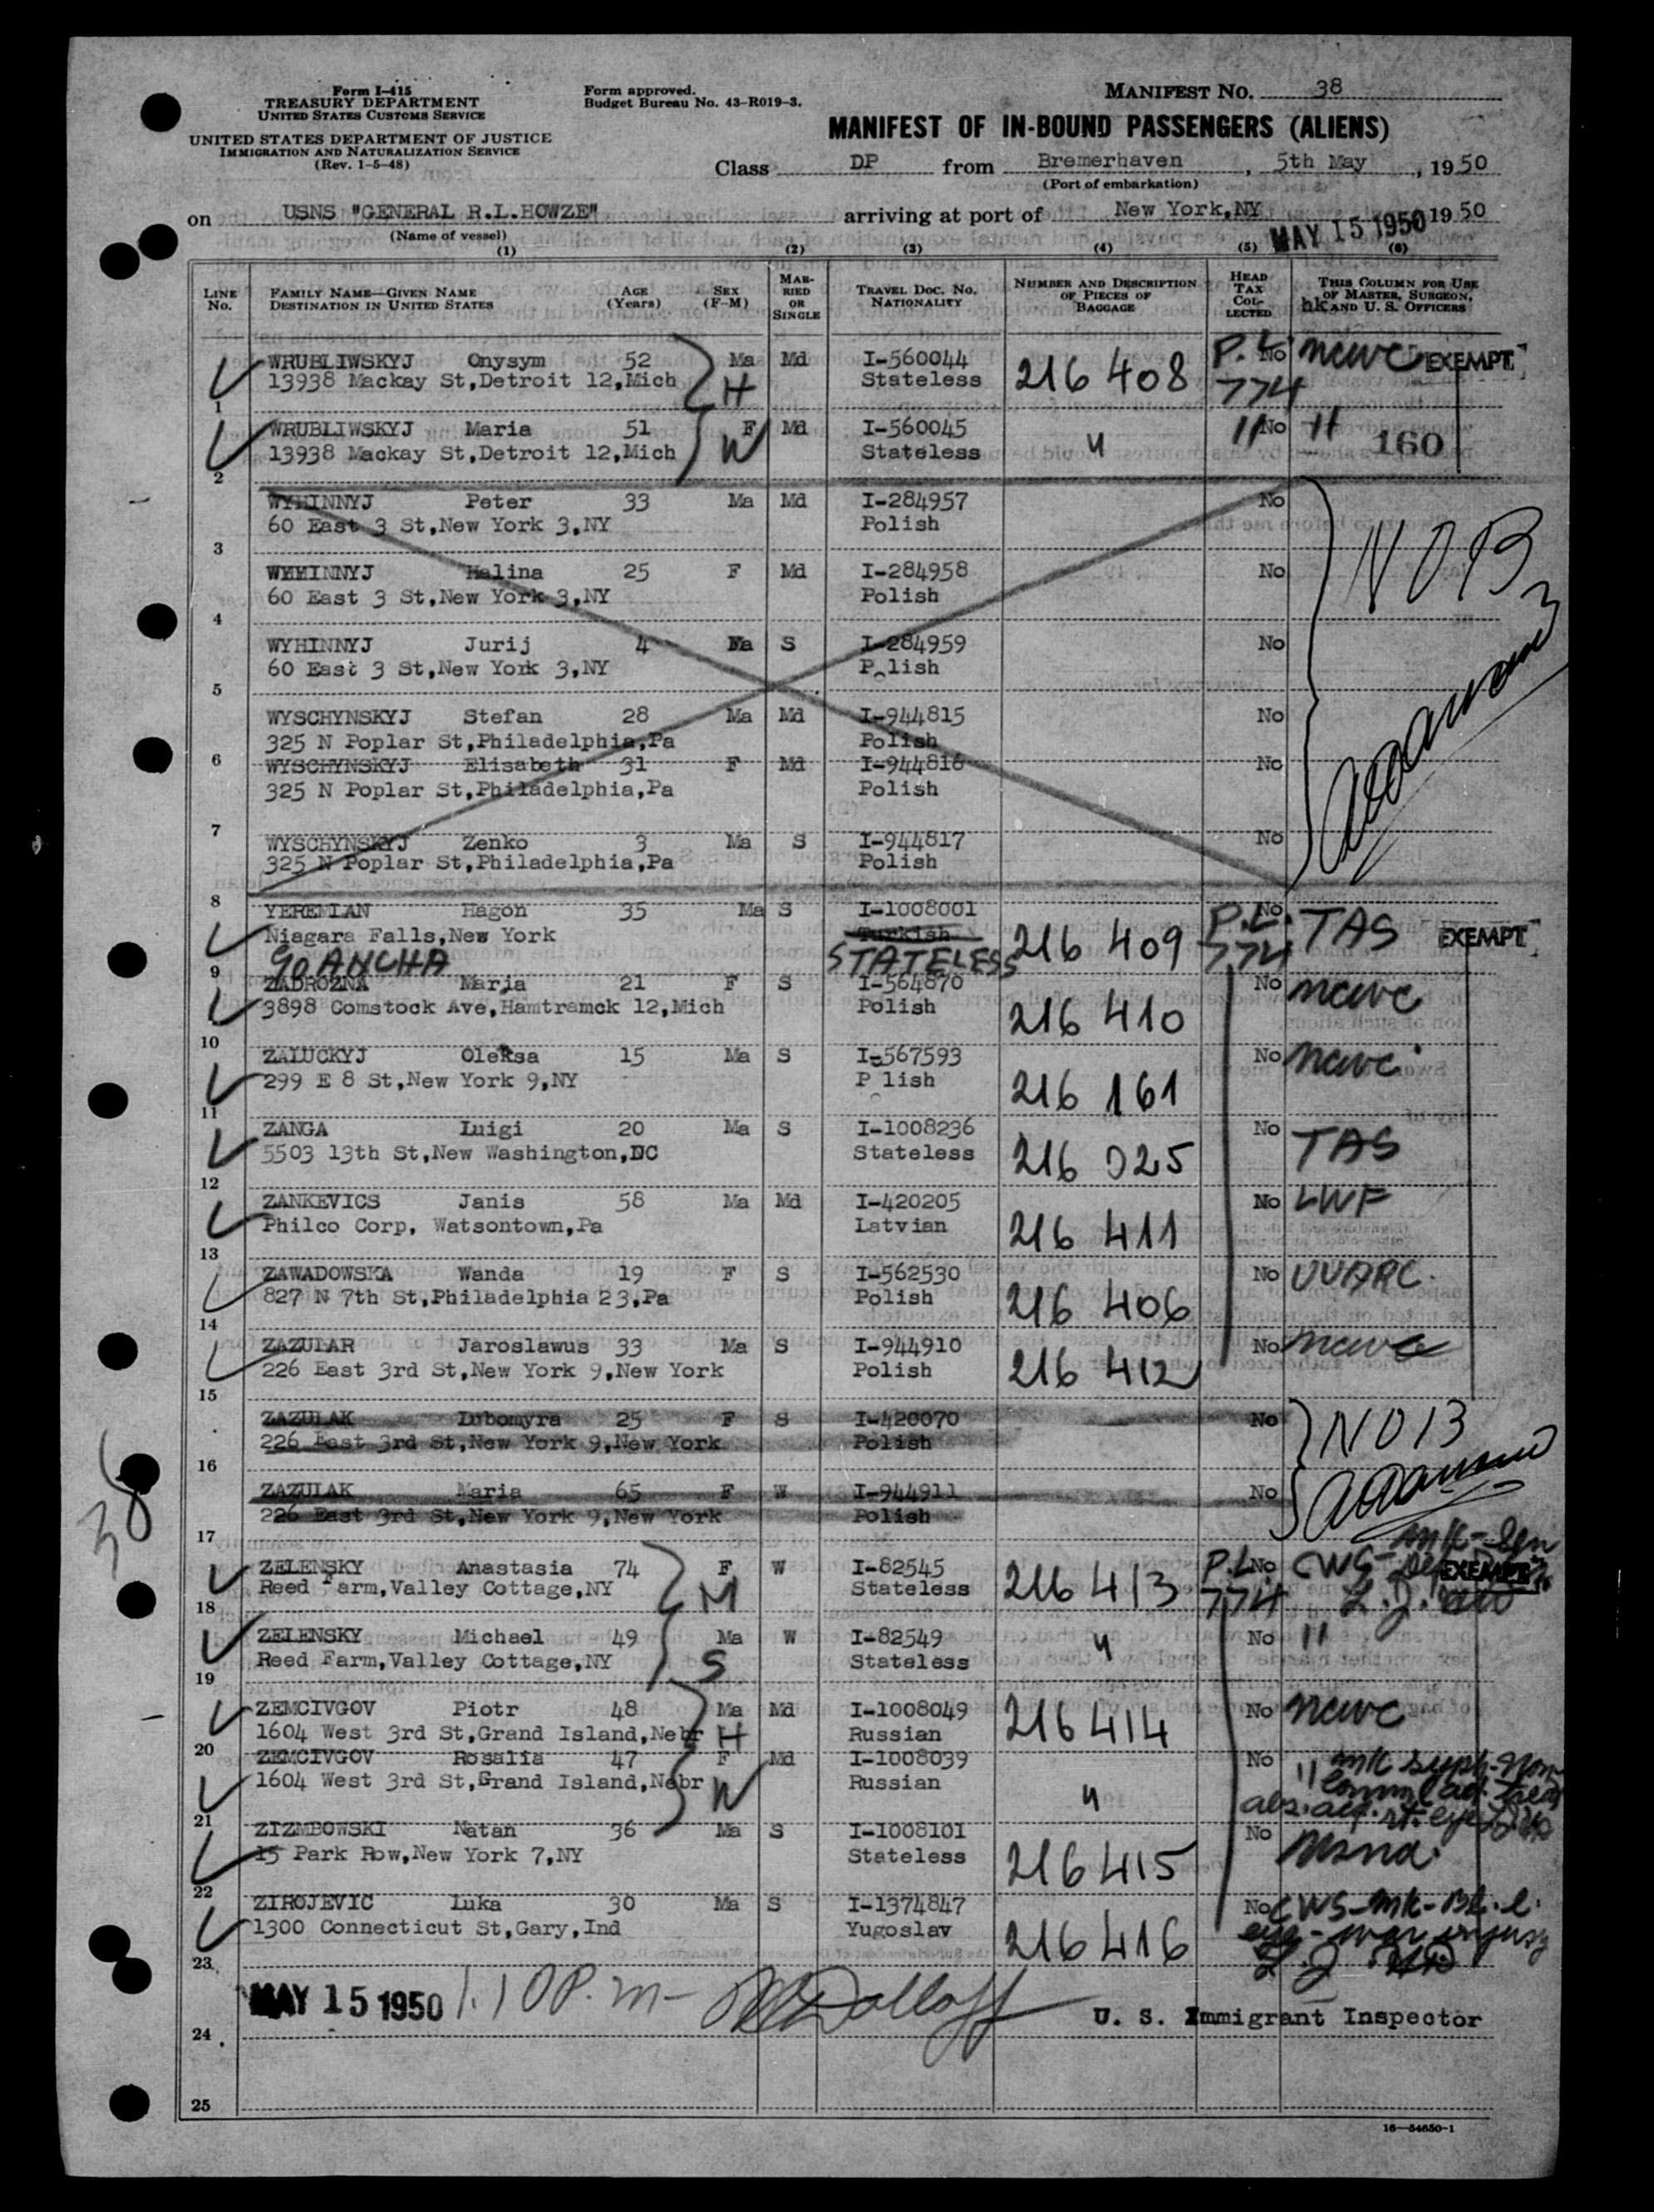 Form I-415
TREASURY DEPARTMENT
UNITED STATES CUSTOMS SERVICE
UNITED STATES DEPARTMENT OF JUSTICE
IMMIGRATION AND NATURALIZATION SERVICE
(Rev. 1-5-48)
Form approved.
Budget Bureau No. 43-R019-3.
MANIFEST NO. 38
MANIFEST OF IN-BOUND PASSENGERS (ALIENS)
Class DP from Bremerhaven, 5th May, 1950
(Port of embarkation)
on USNS "GENERAL R.L.HOWZE" arriving at port of New York,NY MAY 15 1950 1950
(Name of vessel)
(1) (2) (3) (4) (5) (6)
LINE No. FAMILY NAME—GIVEN NAME DESTINATION IN UNITED STATES AGE (Years) SEX (F-M) MARRIED OR SINGLE TRAVEL DOC. NO. NATIONALITY NUMBER AND DESCRIPTION OF PIECES OF BAGGAGE HEAD TAX COLLECTED THIS COLUMN FOR USE OF MASTER, SURGEON, AND U. S. OFFICERS
WRUBLIWSKYJ Onysym 52 Ma Md I-560044 P.L. No ncwc EXEMPT
1 13938 Mackay St,Detroit 12,Mich H Stateless 216 408 774
WRUBLIWSKYJ Maria 51 F Md I-560045 " No "
2 13938 Mackay St,Detroit 12,Mich W Stateless " 160
WYHINNYJ Peter 33 Ma Md I-284957 No
3 60 East 3 St,New York 3,NY Polish
WYHINNYJ Halina 25 F Md I-284958 No NOB
4 60 East 3 St,New York 3,NY Polish
WYHINNYJ Jurij 4 Ma S I-284959 No
5 60 East 3 St,New York 3,NY Polish
WYSCHYNSKYJ Stefan 28 Ma Md I-944815 No
6 325 N Poplar St,Philadelphia,Pa Polish
WYSCHYNSKYJ Elisabeth 31 F Md I-944816 No
7 325 N Poplar St,Philadelphia,Pa Polish
WYSCHYNSKYJ Zenko 3 Ma S I-944817 No
8 325 N Poplar St,Philadelphia,Pa Polish
YEREMIAN Hagon 35 Ma S I-1008001 P.L. No TAS EXEMPT
9 Niagara Falls,New York Turkish 216 409 774
GO ANCHA STATELESS
ZADROZNA Maria 21 F S I-564870 No ncwc
10 3898 Comstock Ave,Hamtramck 12,Mich Polish 216 410
ZALUCKYJ Oleksa 15 Ma S I-567593 No ncwc
11 299 E 8 St,New York 9,NY P lish 216 161
ZANGA Luigi 20 Ma S I-1008236 No TAS
12 5503 13th St,New Washington,DC Stateless 216 025
ZANKEVICS Janis 58 Ma Md I-420205 No LWF
13 Philco Corp, Watsontown,Pa Latvian 216 411
ZAWADOWSKA Wanda 19 F S I-562530 No UUARC.
14 827 N 7th St,Philadelphia 23,Pa Polish 216 406
ZAZULAR Jaroslawus 33 Ma S I-944910 No ncwc
15 226 East 3rd St,New York 9,New York Polish 216 412
ZAZULAK Lubomyra 25 F S I-420070 No NOB
16 226 East 3rd St,New York 9,New York Polish
ZAZULAK Maria 65 F W I-944911 No
17 226 East 3rd St,New York 9,New York Polish
ZELENSKY Anastasia 74 F W I-82545 P.L. No CWS- mk-Sen EXEMPT
18 Reed Farm,Valley Cottage,NY M Stateless 216 413 774
ZELENSKY Michael 49 Ma W I-82549 No "
19 Reed Farm,Valley Cottage,NY S Stateless "
ZEMCIVGOV Piotr 48 Ma Md I-1008049 No ncwc
20 1604 West 3rd St,Grand Island,Nebr H Russian 216 414
ZEMCIVGOV Rosalia 47 F Md I-1008039 No " mk syph-non
21 1604 West 3rd St,Grand Island,Nebr W Russian "
ZIZMBOWSKI Natan 36 Ma S I-1008101 No usna.
22 15 Park Row,New York 7,NY Stateless 216 415
ZIROJEVIC Luka 30 Ma S I-1374847 No CWS-mk-Bl.l.
23 1300 Connecticut St,Gary,Ind Yugoslav 216 416 eye-war injury
MAY 15 1950 1.10 P.m- U. S. Immigrant Inspector
24
25
38
16—54650-1